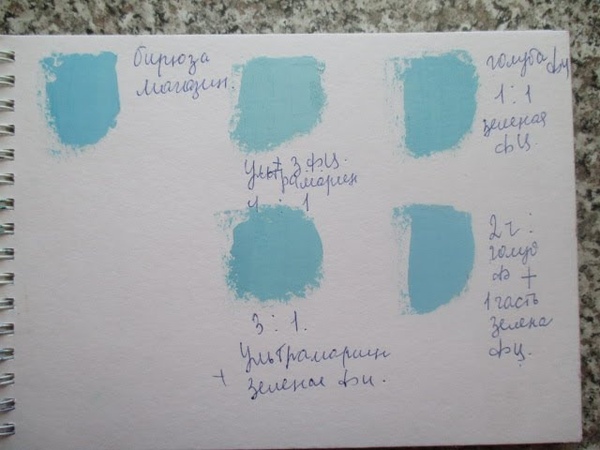 бирюза
магазин.
ульт 3 фц.
Ультрамарин
1 : 1
голуба фц
1 : 1
зеленая
фц.
3 : 1.
Ультрамарин
+ зеленая фц.
2 ч :
голуб
ф +
1 часть
зелена
фц.